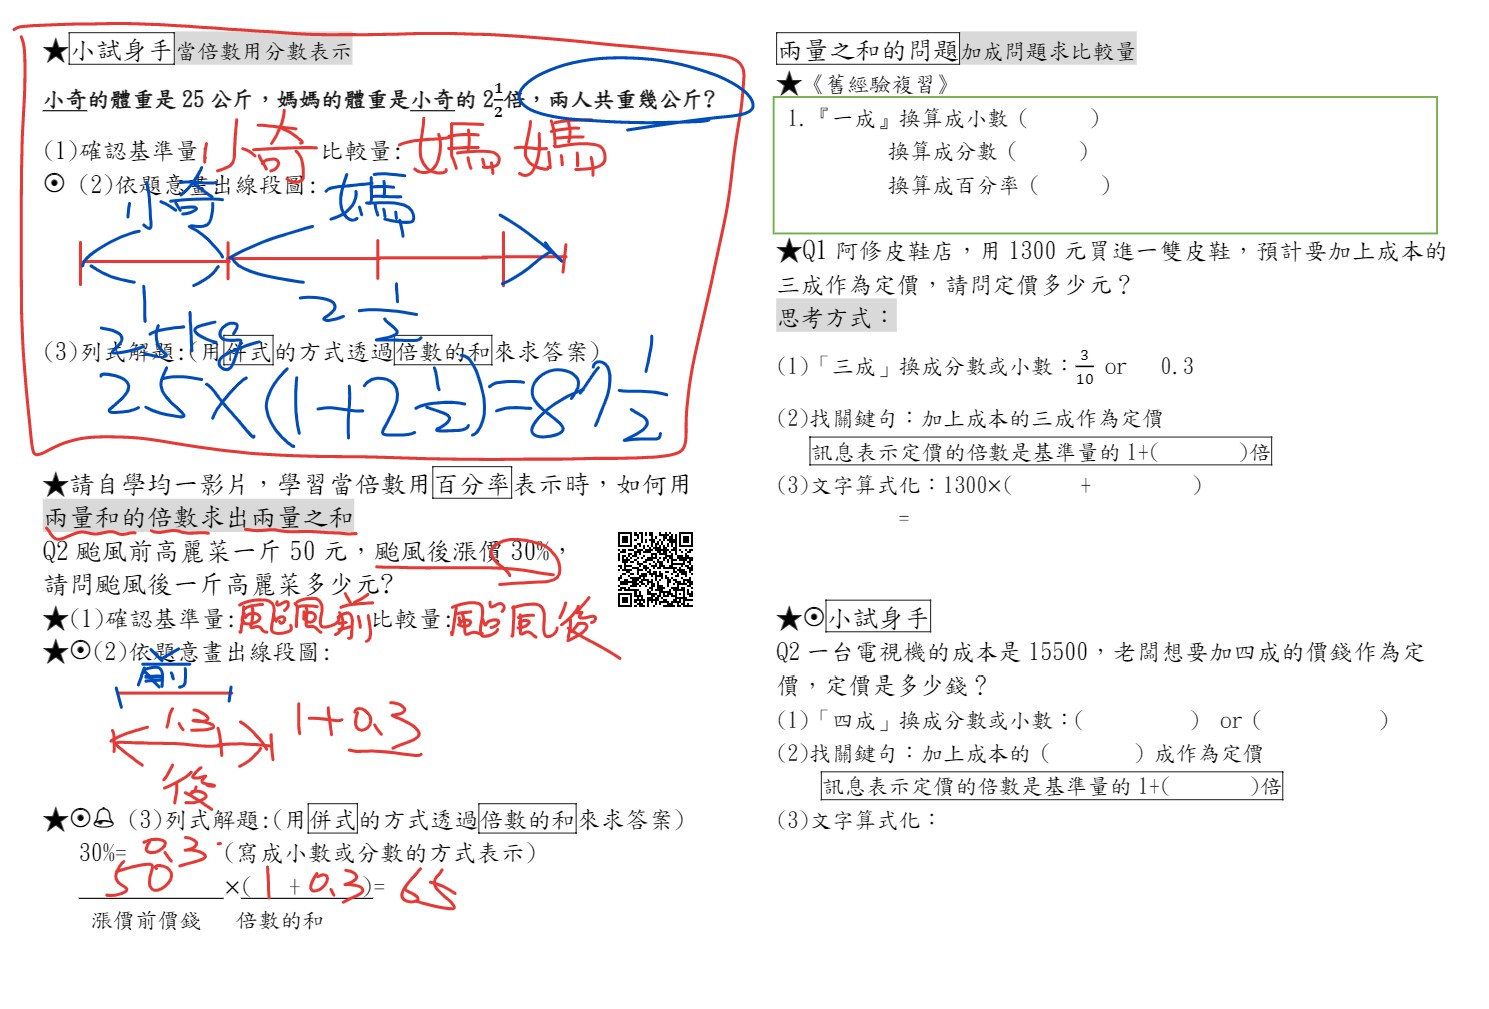 ★小試身手當倍數用分數表示
小奇的體重是 25 公斤，媽媽的體重是小奇的 2 1/2 倍，兩人共重幾公斤?
(1)確認基準量:小奇 比較量:媽媽
⊙ (2)依題意畫出線段圖:
小奇 媽
1 2 1/2
25kg
(3)列式解題:(用併式的方式透過倍數的和來求答案)
25×(1+2 1/2)=87 1/2
★請自學均一影片，學習當倍數用百分率表示時，如何用
兩量和的倍數求出兩量之和
Q2 颱風前高麗菜一斤 50 元，颱風後漲價 30%，
請問颱風後一斤高麗菜多少元?
★(1)確認基準量:颱風前 比較量:颱風後
★⊙(2)依題意畫出線段圖:
前
1.3 1+0.3
後
★⊙🔔 (3)列式解題:(用併式的方式透過倍數的和來求答案)
30%= 0.3 (寫成小數或分數的方式表示)
50 ×( 1 + 0.3 )= 65
漲價前價錢 倍數的和
兩量之和的問題加成問題求比較量
★《舊經驗複習》
1.『一成』換算成小數（　　）
換算成分數（　　）
換算成百分率（　　）
★Q1 阿修皮鞋店，用 1300 元買進一雙皮鞋，預計要加上成本的
三成作為定價，請問定價多少元？
思考方式：
(1)「三成」換成分數或小數：3/10 or 0.3
(2)找關鍵句：加上成本的三成作為定價
訊息表示定價的倍數是基準量的 1+(　　)倍
(3)文字算式化：1300×(　　+　　)
=
★⊙小試身手
Q2 一台電視機的成本是 15500，老闆想要加四成的價錢作為定
價，定價是多少錢？
(1)「四成」換成分數或小數：(　　) or (　　)
(2)找關鍵句：加上成本的（　　）成作為定價
訊息表示定價的倍數是基準量的 1+(　　)倍
(3)文字算式化：